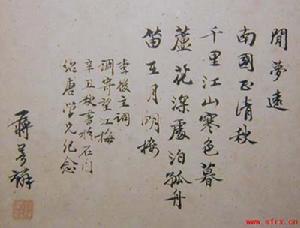 閒夢遠
南國正清秋
千里江山寒色暮
蘆花深處泊孤舟
笛在月明樓
李後主詞
調寄望江梅
辛丑秋書於石门
绍唐学兄纪念
www.sfrx.cn